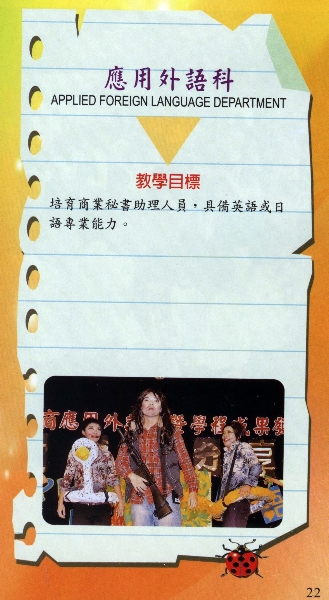 應用外語科
APPLIED FOREIGN LANGUAGE DEPARTMENT
教學目標
培育商業秘書助理人員，具備英語或日
語專業能力。
商應用外
學程成果發
享
22